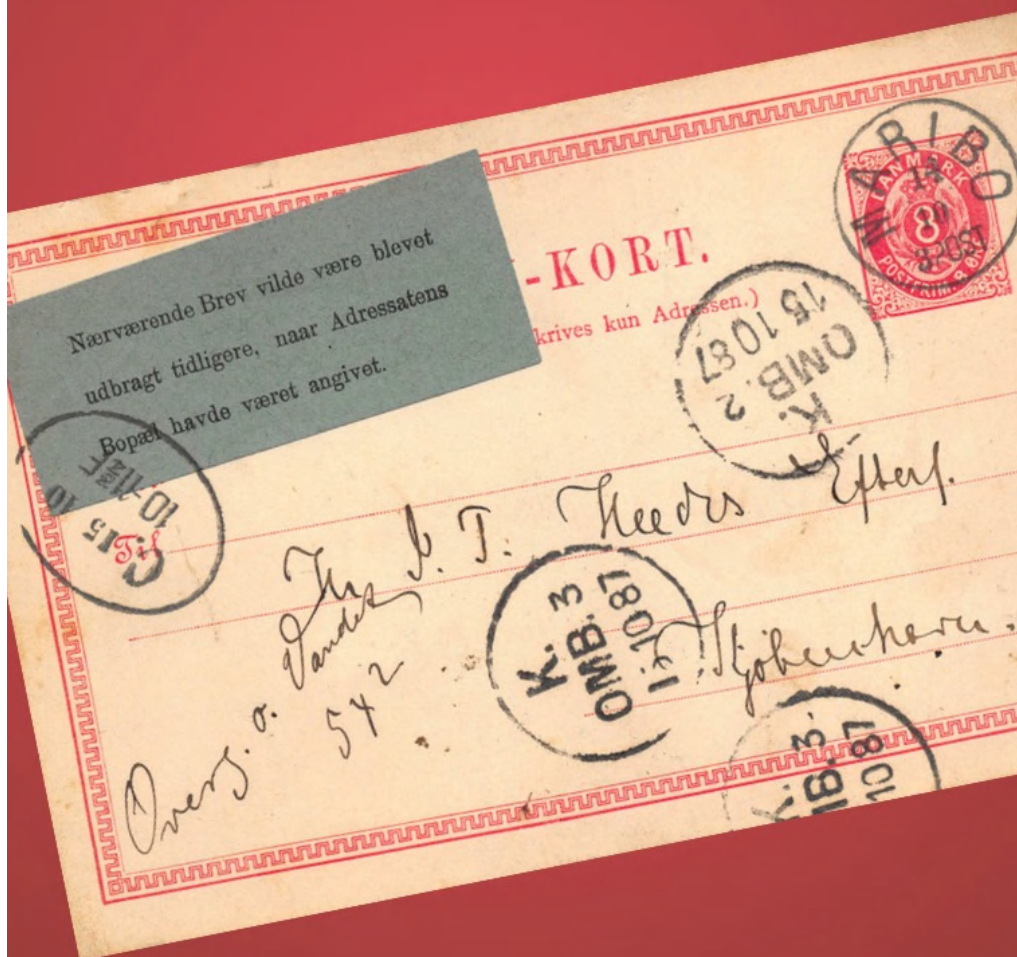 Nærværende Brev vilde være blevet
udbragt tidligere, naar Adressatens
Bopæl havde været angivet.
-KORT.
krives kun Adressen.)
MARIBO
14
10
3POST
DANMARK
8
POSTFRIM. 8 ØRE
K.
OMB. 2
15 10 87
C. 15 10
10-11
Til
Hr. T. Heedes Efterf.
Kjøbenhavn.
Overg. o.
Vandet
542
K. 3
OMB.
15 10 87
K. 3.
MB.
10 87